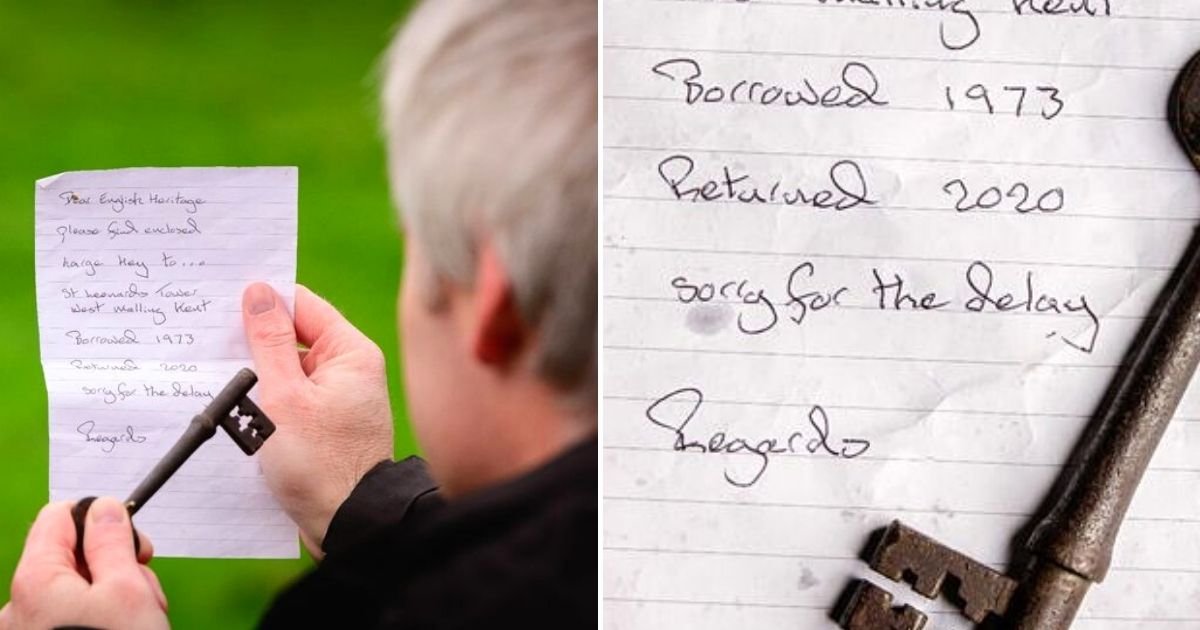 Dear English Heritage
please find enclosed
Large Key to...
St Leonards Tower
West Malling Kent
Borrowed 1973
Returned 2020
sorry for the delay
Regards
Malling Kent
Borrowed 1973
Returned 2020
sorry for the delay
Regards